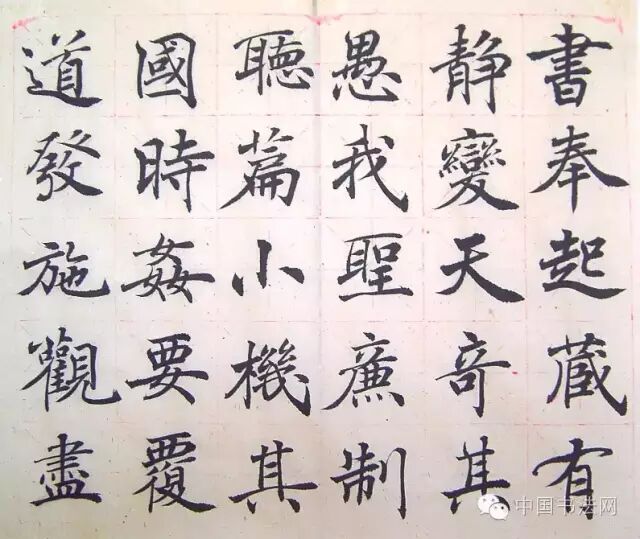 書奉起蔵有
静變天奇其
愚我聖亷制
聽篇小機其
國時姦要覆
道發施觀盡
中国书法网